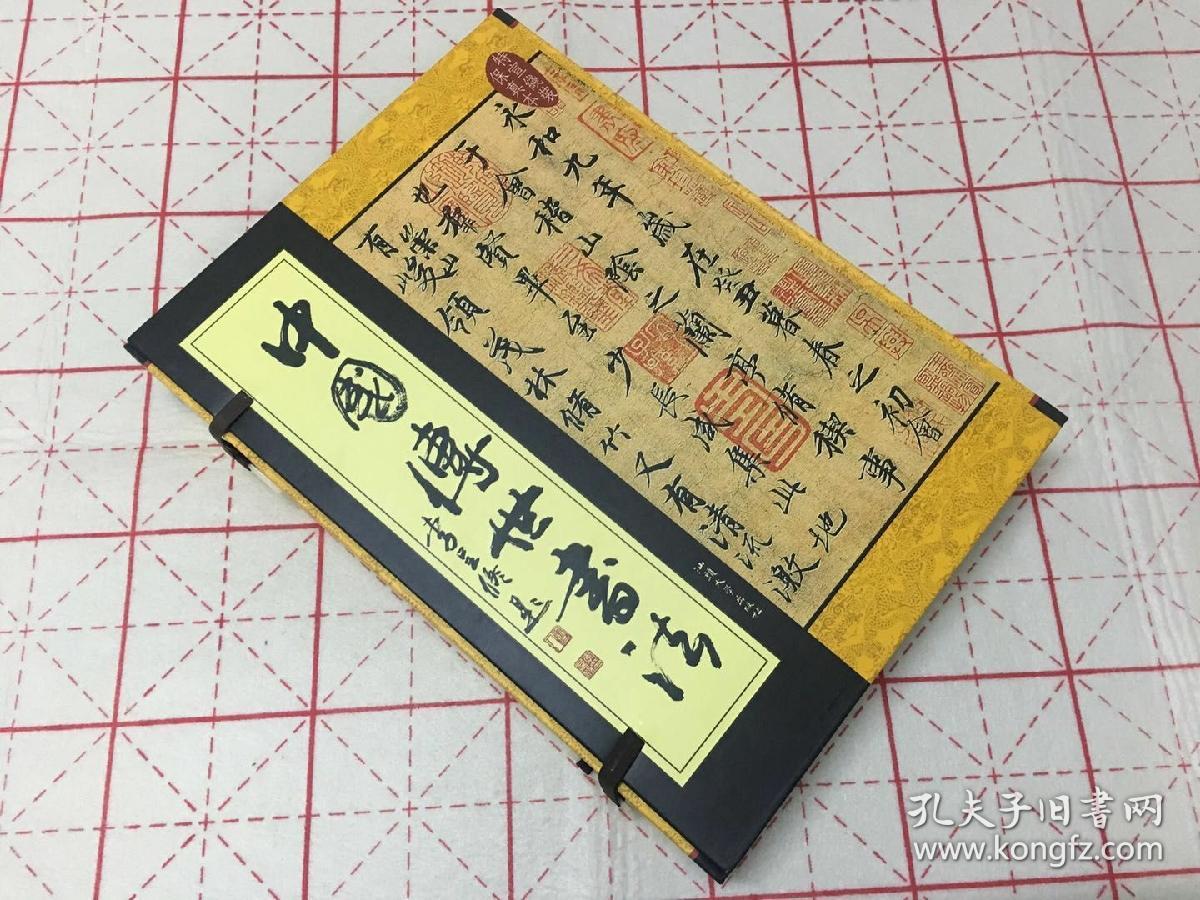 永和九年歲在癸丑暮春之初會
于會稽山陰之蘭亭脩稧事
也羣賢畢至少長咸集此地
有崇山峻領茂林脩竹又有清流激
中國傳世書法
汕頭大學出版社
孔夫子旧書网
www.kongfz.com